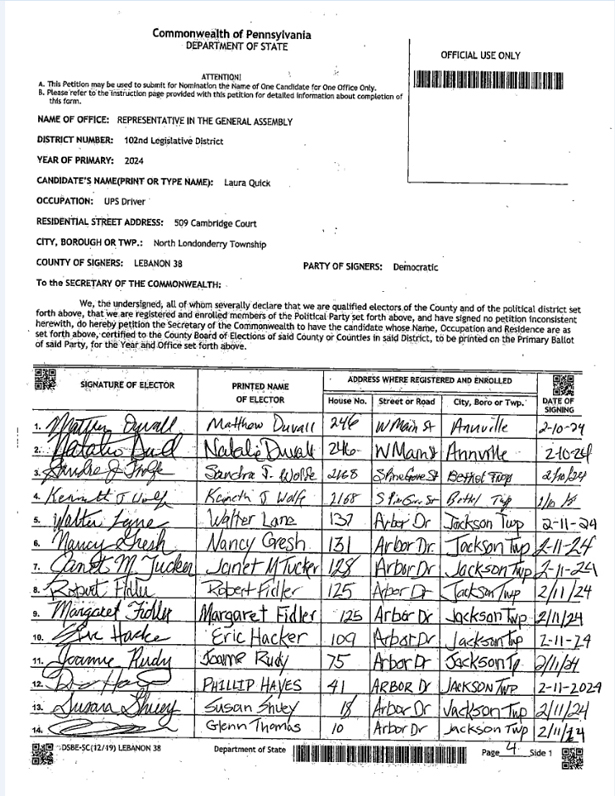 Commonwealth of Pennsylvania
DEPARTMENT OF STATE
OFFICIAL USE ONLY
ATTENTION!
A. This Petition may be used to submit for Nomination the Name of One Candidate for One Office Only.
B. Please refer to the instruction page provided with this petition for detailed information about completion of
this form.
NAME OF OFFICE: REPRESENTATIVE IN THE GENERAL ASSEMBLY
DISTRICT NUMBER: 102nd Legislative District
YEAR OF PRIMARY: 2024
CANDIDATE'S NAME(PRINT OR TYPE NAME): Laura Quick
OCCUPATION: UPS Driver
RESIDENTIAL STREET ADDRESS: 509 Cambridge Court
CITY, BOROUGH OR TWP.: North Londonderry Township
COUNTY OF SIGNERS: LEBANON 38 PARTY OF SIGNERS: Democratic
To the SECRETARY OF THE COMMONWEALTH:
We, the undersigned, all of whom severally declare that we are qualified electors of the County and of the political district set
forth above, that we are registered and enrolled members of the Political Party set forth above, and have signed no petition inconsistent
herewith, do hereby petition the Secretary of the Commonwealth to have the candidate whose Name, Occupation and Residence are as
set forth above, certified to the County Board of Elections of said County or Counties in said District, to be printed on the Primary Ballot
of said Party, for the Year and Office set forth above.
SIGNATURE OF ELECTOR PRINTED NAME OF ELECTOR ADDRESS WHERE REGISTERED AND ENROLLED DATE OF SIGNING
House No. Street or Road City, Boro or Twp.
1. Matthew Duvall Matthew Duvall 246 W Main St Annville 2-10-24
2. Natalie Duvall 246 W Main St Annville 2-10-24
3. Sandra J. Wolfe 2168 Bethel Twp 2/10/24
4. Kenneth J Wolf Kenneth J Wolfe 2168 Bethel Twp
5. Walter Lane Walter Lane 137 Arbor Dr Jackson Twp 2-11-24
6. Nancy Gresh Nancy Gresh 131 Arbor Dr. Jackson Twp 2-11-24
7. Janet M Tucker Janet M Tucker 128 Arbor Dr Jackson Twp 2-11-24
8. Robert Fidler Robert Fidler 125 Arbor Dr Jackson Twp 2/11/24
9. Margaret Fidler Margaret Fidler 125 Arbor Dr Jackson Twp 2/11/24
10. Eric Hacker Eric Hacker 109 Arbor Dr Jackson Twp 2-11-24
11. Joanne Rudy Joanne Rudy 75 Arbor Dr Jackson Tp 2/11/24
12. PHILLIP HAYES 41 ARBOR Dr JACKSON TWP 2-11-2024
13. Susan Shuey Susan Shuey 18 Arbor Dr Jackson Twp 2/11/24
14. Glenn Thomas 10 Arbor Dr Jackson Twp 2/11/24
DSBE-SC(12/19) LEBANON 38 Department of State Page 4 Side 1